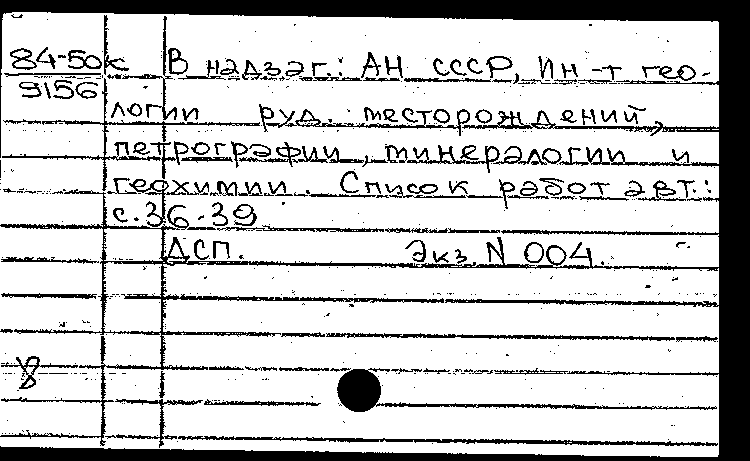 84-50к В надзаг.: АН СССР, Ин-т гео-
9156
логии руд. месторождений,
петрографии, минералогии и
геохимии. Список работ авт.:
с.36-39
ДСП. Экз. N 004.